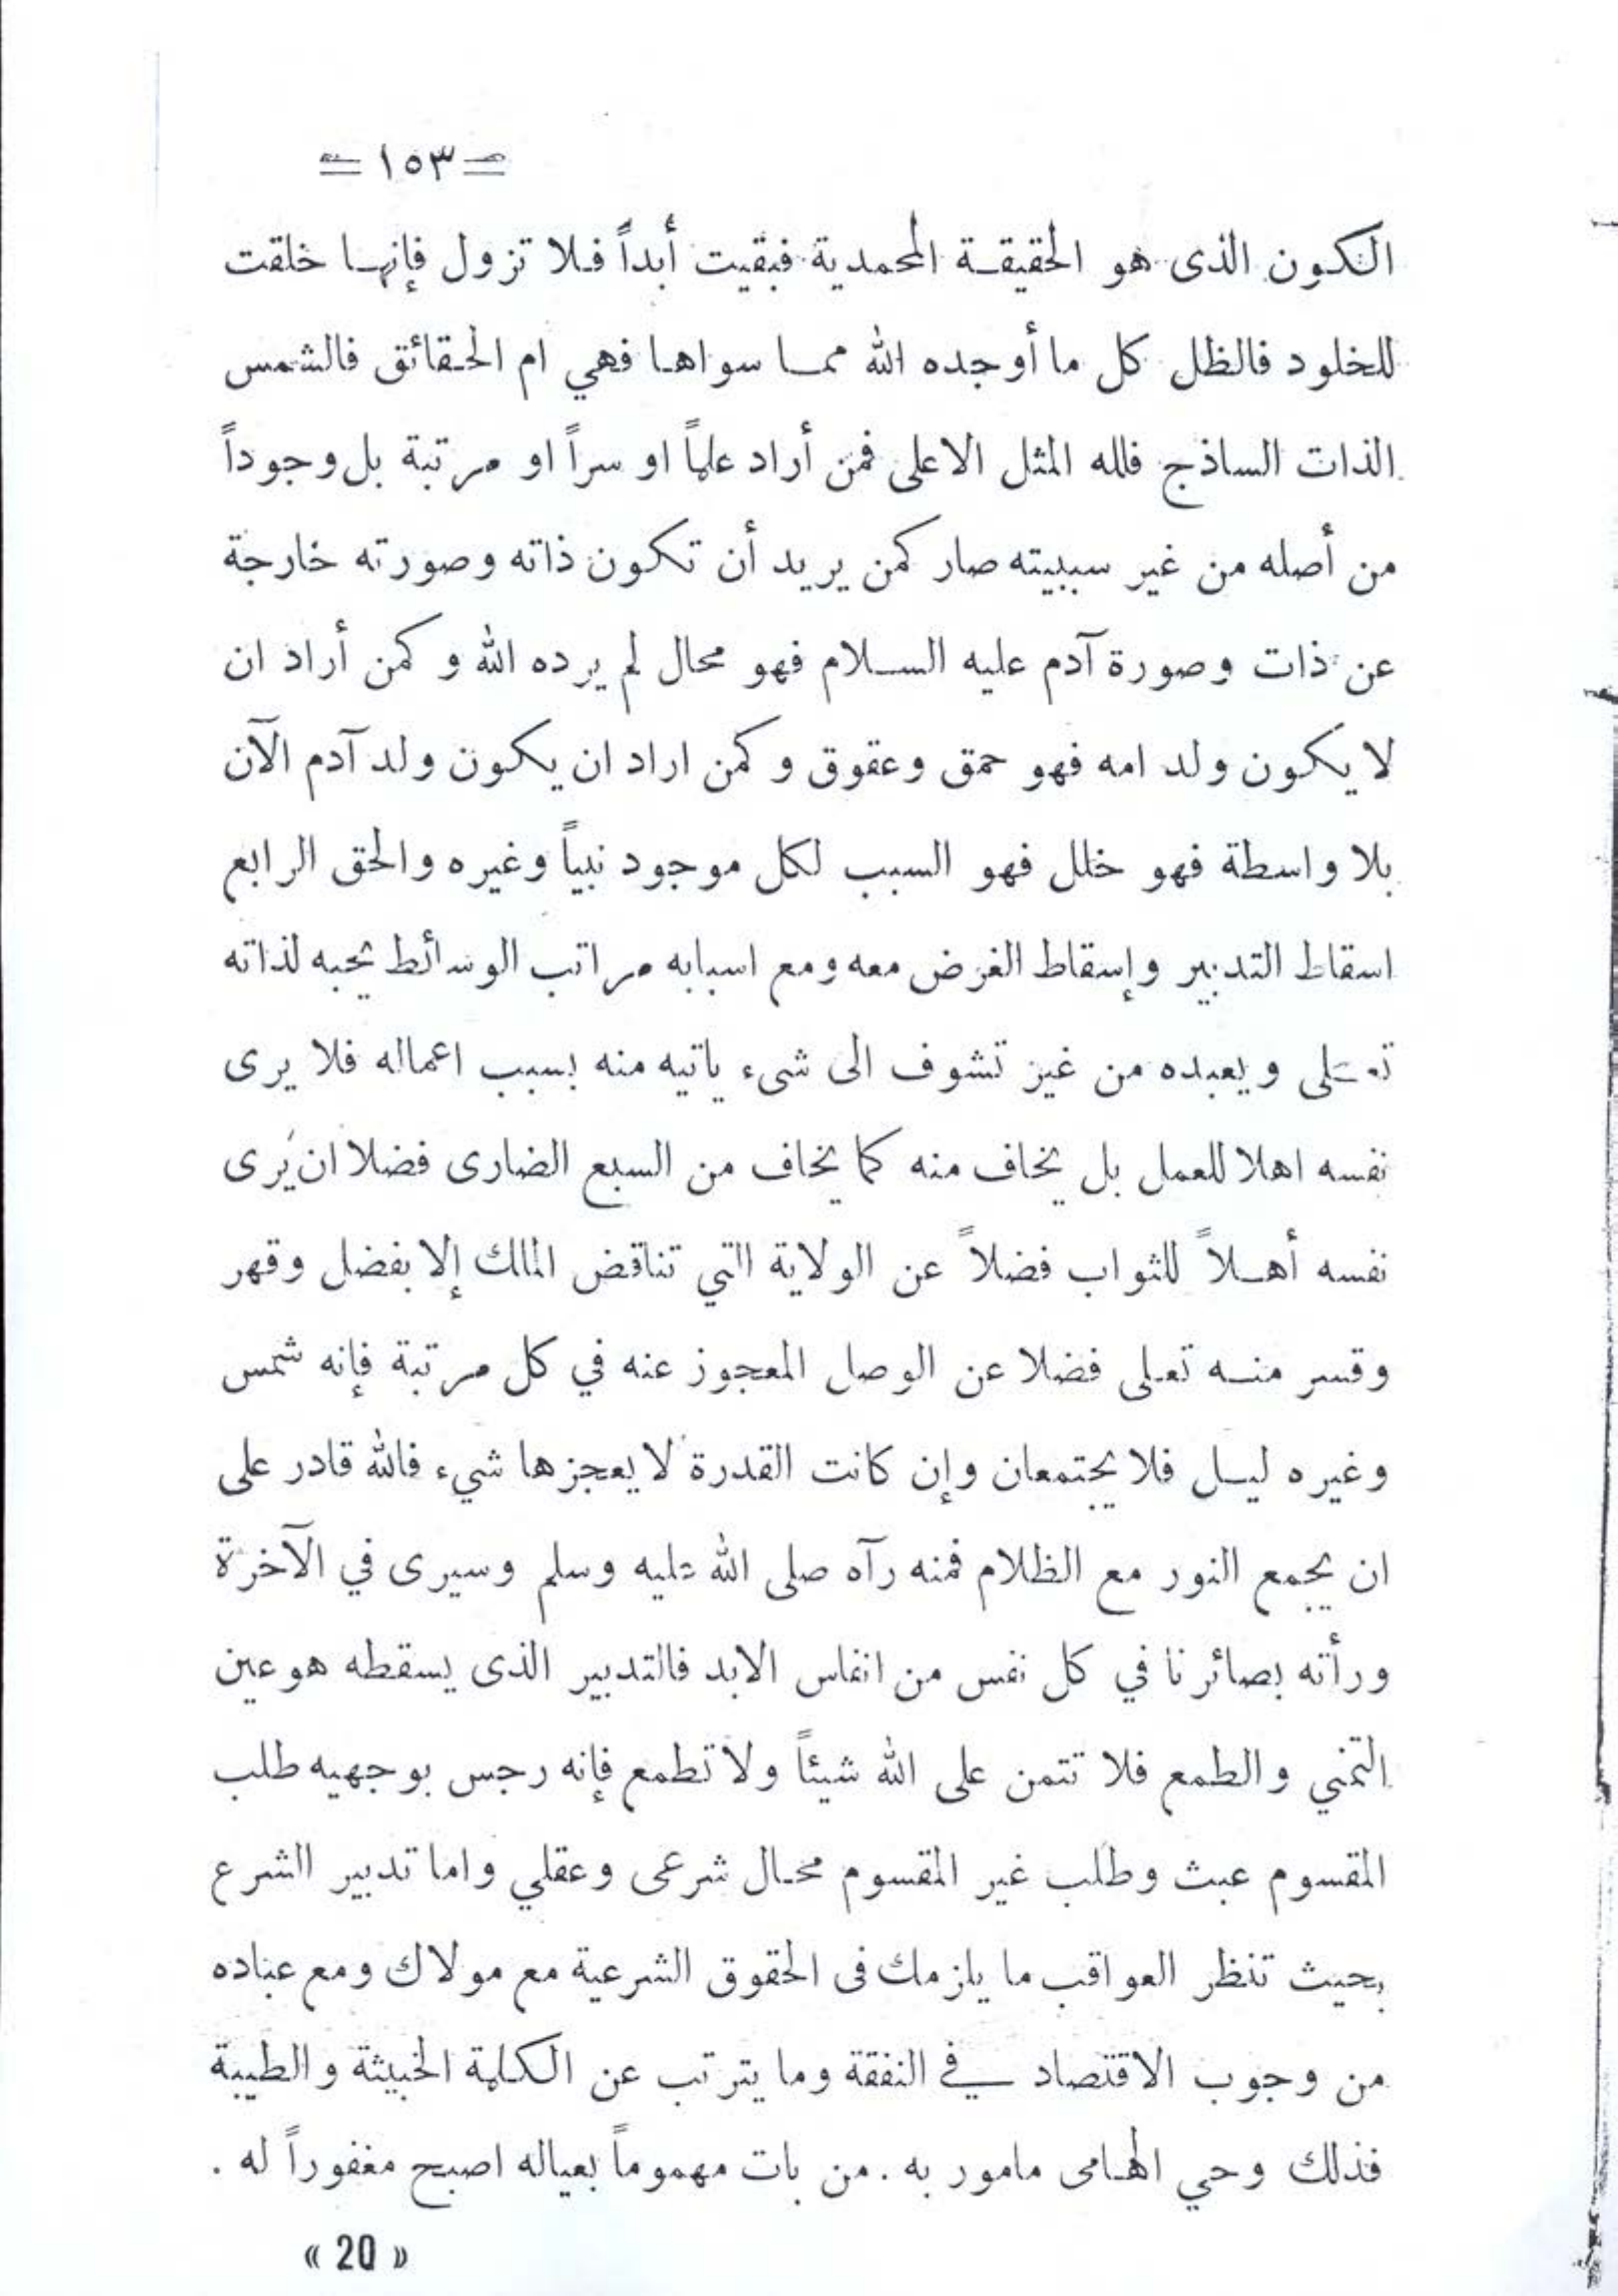 = ١٥٣ =
الكون الذى هو الحقيقة المحمدية فبقيت أبداً فلا تزول فإنها خلقت
للخلود فالظل كل ما أوجده الله مما سواها فهي ام الحقائق فالشمس
الذات الساذج فلله المثل الاعلى فمن أراد علماً او سراً او مرتبة بل وجوداً
من أصله من غير سببيته صار كمن يريد أن تكون ذاته وصورته خارجة
عن ذات وصورة آدم عليه السلام فهو محال لم يرده الله وكمن أراد ان
لا يكون ولد امه فهو حمق وعقوق وكمن اراد ان يكون ولد آدم الآن
بلا واسطة فهو خلل فهو السبب لكل موجود نبياً وغيره والحق الرابع
اسقاط التدبير وإسقاط الغرض معه ومع اسبابه مراتب الوسائط يحبه لذاته
تعلى ويعبده من غير تشوف الى شىء ياتيه منه بسبب اعماله فلا يرى
نفسه اهلا للعمل بل يخاف منه كما يخاف من السبع الضارى فضلا ان يَرى
نفسه أهلاً للثواب فضلاً عن الولاية التي تناقض الملك إلا بفضل وقهر
وقسر منه تعلى فضلا عن الوصل المعجوز عنه في كل مرتبة فإنه شمس
وغيره ليل فلا يجتمعان وإن كانت القدرة لا يعجزها شيء فالله قادر على
ان يجمع النور مع الظلام فمنه رآه صلى الله عليه وسلم وسيرى في الآخرة
ورأته بصائرنا في كل نفس من انفاس الابد فالتدبير الذى يسقطه هو عين
التمني والطمع فلا تتمن على الله شيئاً ولا تطمع فإنه رجس بوجهيه طلب
المقسوم عبث وطلب غير المقسوم محال شرعى وعقلي واما تدبير الشرع
بحيث تنظر العواقب ما يلزمك فى الحقوق الشرعية مع مولاك ومع عباده
من وجوب الاقتصاد في النفقة وما يترتب عن الكلمة الخبيثة والطيبة
فذلك وحي الهامى مامور به . من بات مهموماً بعياله اصبح مغفوراً له .
« 20 »